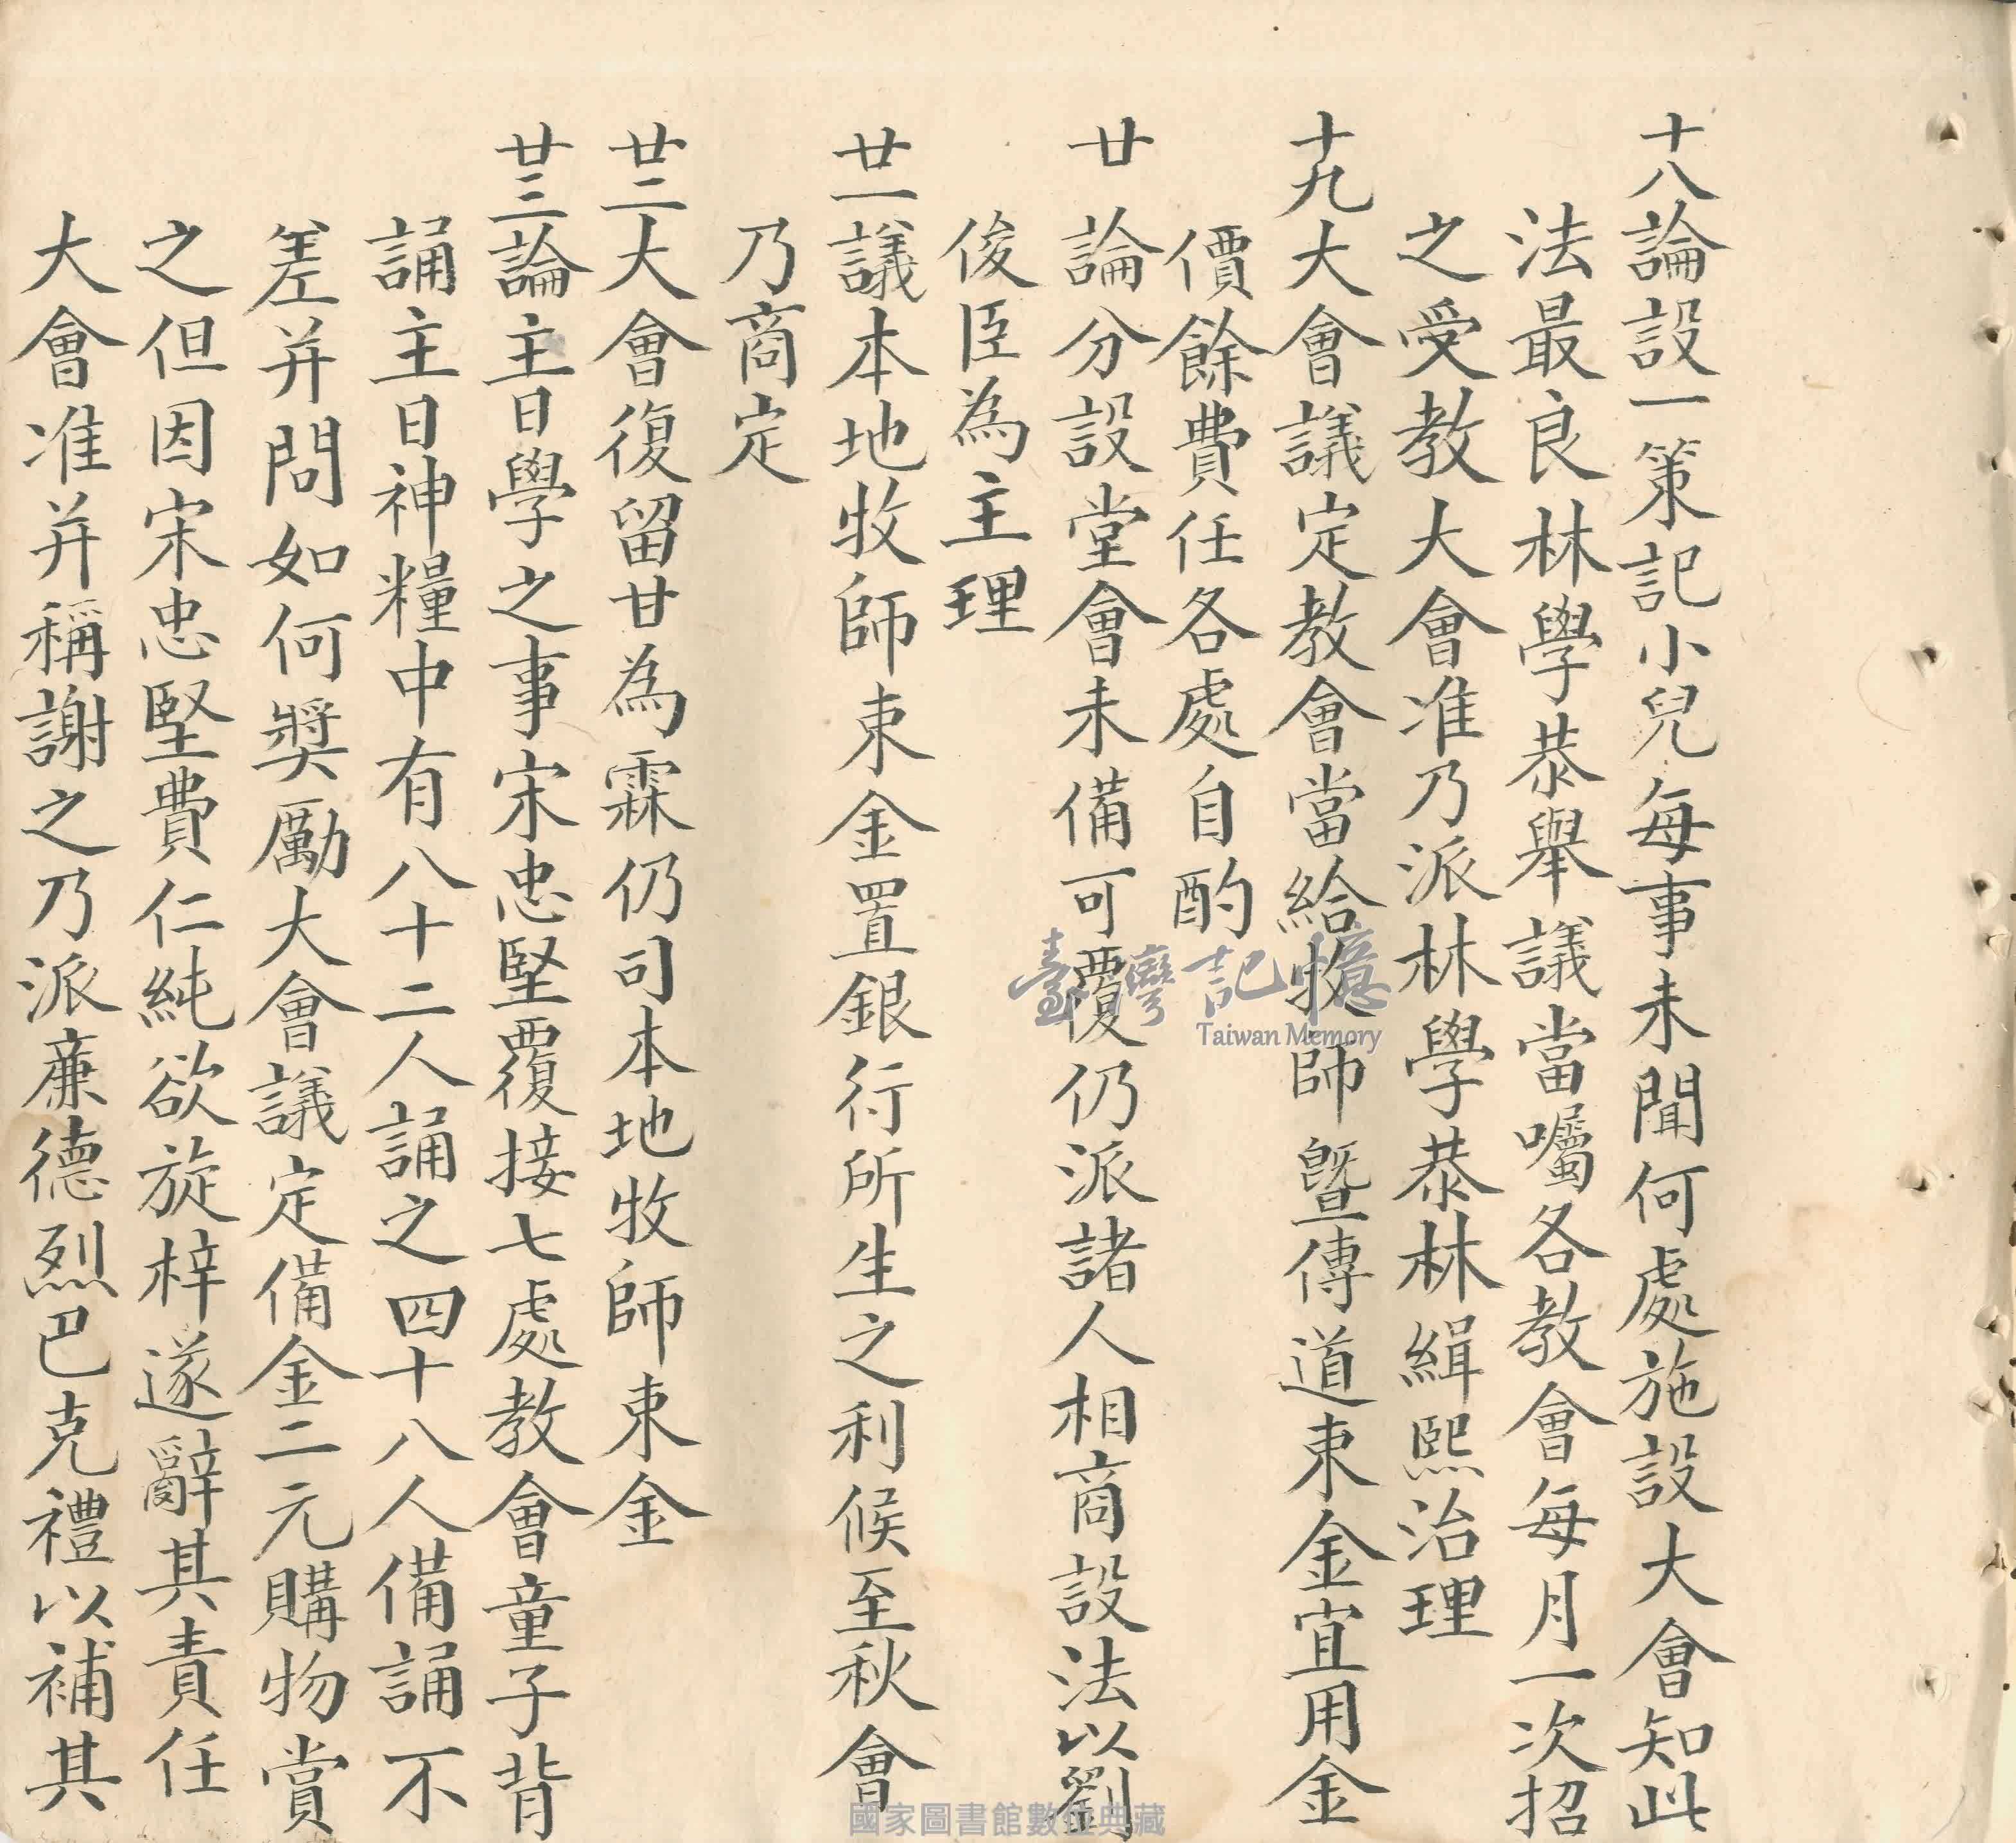 十八論設一策記小兒每事未聞何處施設大會知此
法最良林學恭舉議當囑各教會每月一次招
之受教大會准乃派林學恭林緝熙治理
十九大會議定教會當給牧師暨傳道束金宜用金
價餘費任各處自酌
廿論分設堂會未備可覆仍派諸人相商設法以劉
俊臣為主理
廿一議本地牧師束金置銀行所生之利候至秋會
乃商定
廿二大會復留甘為霖仍司本地牧師束金
廿三論主日學之事宋忠堅覆接七處教會童子背
誦主日神糧中有八十二人誦之四十八人備誦不
差并問如何獎勵大會議定備金二元購物賞
之但因宋忠堅費仁純欲旋梓遂辭其責任
大會准并稱謝之乃派廉德烈巴克禮以補其
臺灣記憶
Taiwan Memory
國家圖書館數位典藏